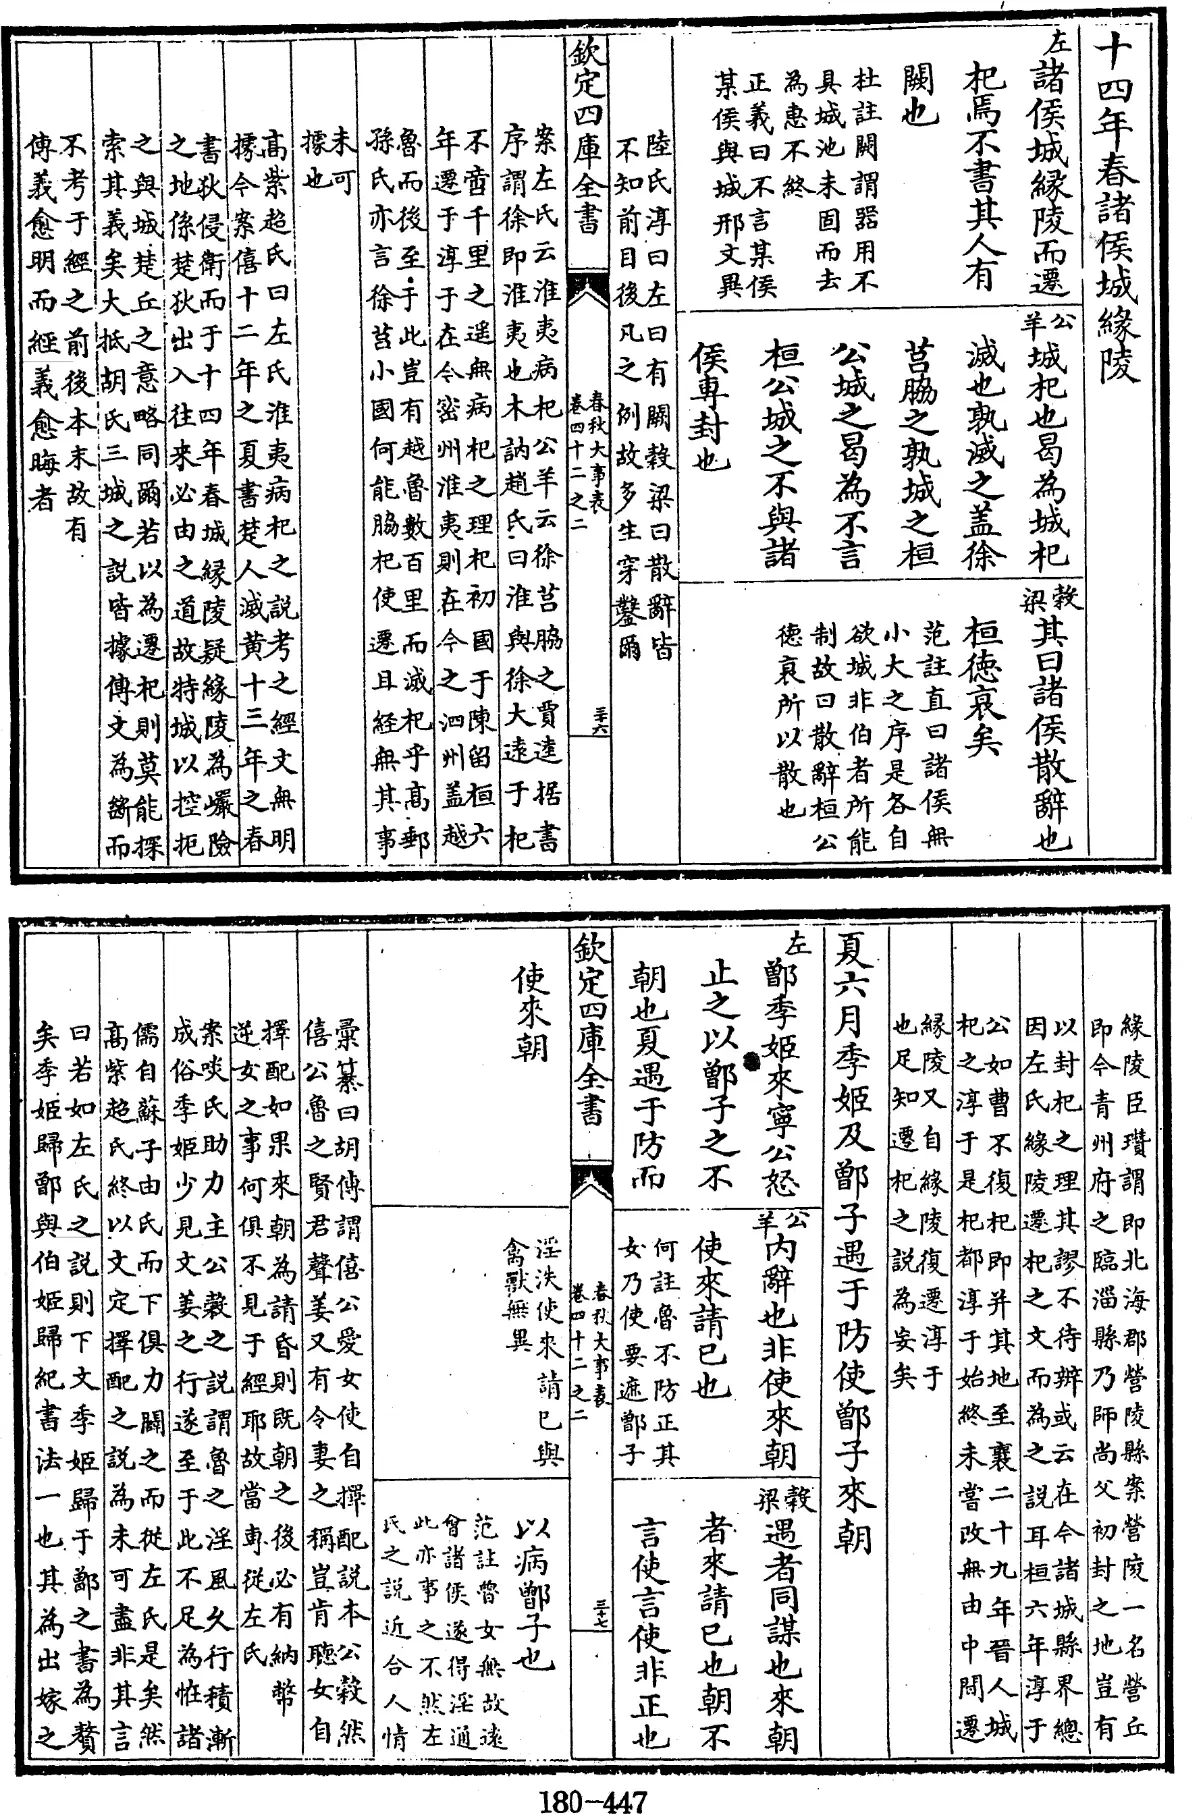 十四年春諸侯城緣陵
左諸侯城緣陵而遷
杞焉不書其人有
闕也
杜註闕謂器用不
具城池未固而去
為惠不終
正義曰不言某侯
某侯與城邢文異
公羊城杞也曷為城杞
滅也孰滅之蓋徐
莒脇之孰城之桓
公城之曷為不言
桓公城之不與諸
侯專封也
榖梁其曰諸侯散辭也
桓德衰矣
范註直曰諸侯無
小大之序是各自
欲城非伯者所能
制故曰散辭桓公
德衰所以散也
陸氏淳曰左曰有闕榖梁曰散辭皆
不知前目後凡之例故多生穿鑿爾
欽定四庫全書
春秋大事表
卷四十二之二
三十六
案左氏云淮夷病杞公羊云徐莒脇之賈逵据書
序謂徐即淮夷也木訥趙氏曰淮與徐大遠于杞
不啻千里之遥無病杞之理杞初國于陳留桓六
年遷于淳于在今密州淮夷則在今之泗州蓋越
魯而後至于此豈有越魯數百里而滅杞乎高郵
孫氏亦言徐莒小國何能脇杞使遷且經無其事
未可
據也
高紫超氏曰左氏淮夷病杞之說考之經文無明
據今案僖十二年之夏書楚人滅黄十三年之春
書狄侵衛而于十四年春城緣陵疑緣陵為巖險
之地係楚狄出入往來必由之道故特城以控扼
之與城楚丘之意略同爾若以為遷杞則莫能探
索其義矣大抵胡氏三城之說皆據傳文為斷而
不考于經之前後本末故有
傳義愈明而經義愈晦者
緣陵臣瓚謂即北海郡營陵縣案營陵一名營丘
即今青州府之臨淄縣乃師尚父初封之地豈有
以封杞之理其謬不待辨或云在今諸城縣界總
因左氏緣陵遷杞之文而為之說耳桓六年淳于
公如曹不復杞即并其地至襄二十九年晉人城
杞之淳于是杞都淳于始終未嘗改無由中間遷
緣陵又自緣陵復遷淳于
也足知遷杞之說為妄矣
夏六月季姬及鄫子遇于防使鄫子來朝
左鄫季姬來寧公怒
止之以鄫子之不
朝也夏遇于防而
使來朝
公羊內辭也非使來朝
使來請已也
何註魯不防正其
女乃使要遮鄫子
淫泆使來請已與
禽獸無異
榖梁遇者同謀也來朝
者來請已也朝不
言使言使非正也
以病鄫子也
范註魯女無故遠
會諸侯遂得淫通
此亦事之不然左
氏之說近合人情
欽定四庫全書
春秋大事表
卷四十二之二
三十七
彚纂曰胡傳謂僖公愛女使自擇配說本公榖然
僖公魯之賢君聲姜又有令妻之稱豈肯聽女自
擇配如果來朝為請昏則既朝之後必有納幣
逆女之事何俱不見于經耶故當專從左氏
案啖氏助力主公榖之說謂魯之淫風久行積漸
成俗季姬少見文姜之行遂至于此不足為怪諸
儒自蘇子由氏而下俱力闢之而從左氏是矣然
高紫超氏終以文定擇配之說為未可盡非其言
曰若如左氏之說則下文季姬歸于鄫之書為贅
矣季姬歸鄫與伯姬歸紀書法一也其為出嫁之
180-447